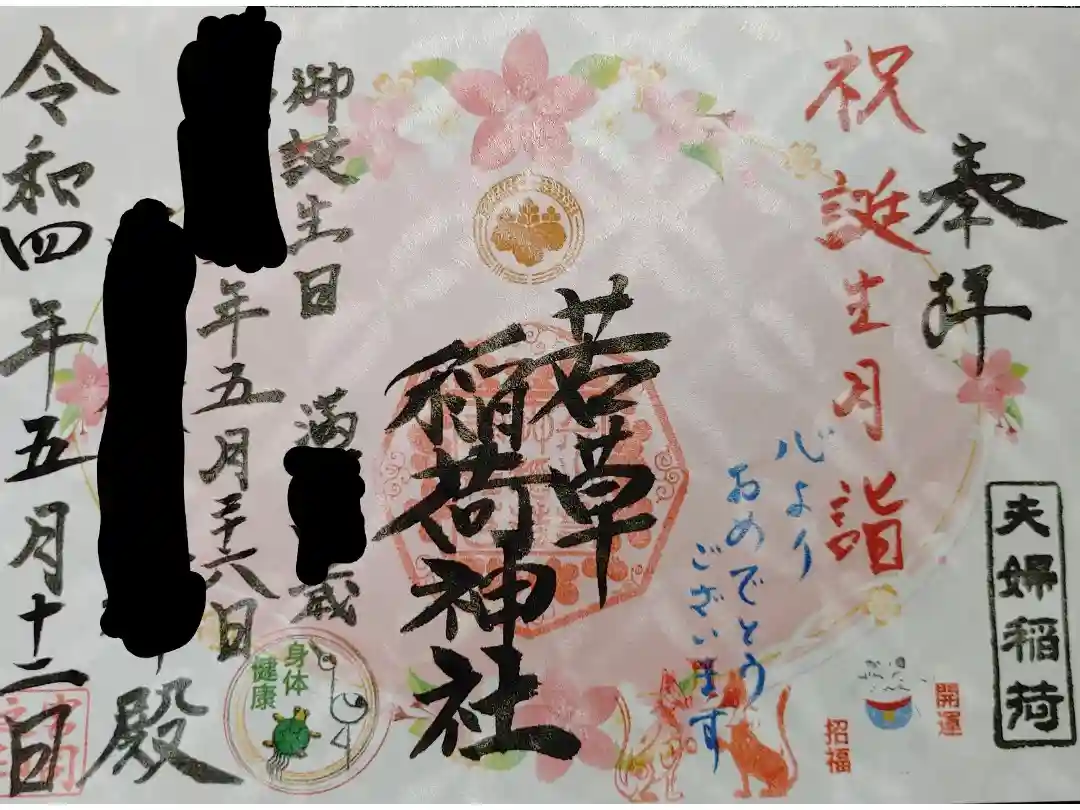 奉拝
夫婦稲荷
祝誕生月詣
心より
おめでとう
ございます
開運
招福
若草
稲荷神社
御誕生日 満 歳
年五月二十六日
身体
健康
殿
令和四年五月十二日